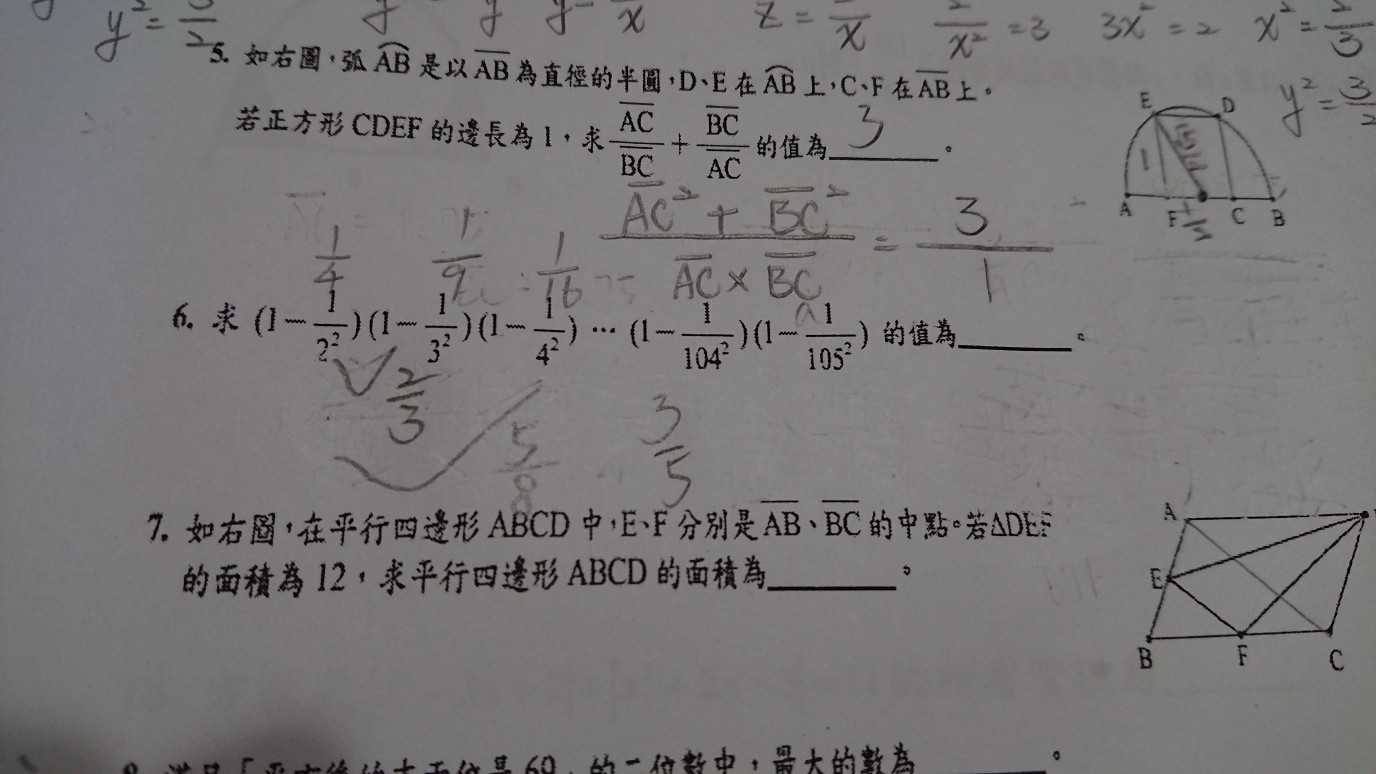 y² = 3/2 y y y = x z = 2/x 2/x² = 3 3x² = 2 x² = 2/3
5. 如右圖，弧AB是以AB為直徑的半圓，D、E在AB上，C、F在AB上。
y² = 3/2
若正方形CDEF的邊長為1，求 AC/BC + BC/AC 的值為 3 。
E D
1 √5/2
A F 1/2 C B
(AC² + BC²)/(AC × BC) = 3/1
1/4 1/9 1/16
6. 求 (1－1/2²)(1－1/3²)(1－1/4²) ⋯ (1－1/104²)(1－1/105²) 的值為________。
2/3
5/8 3/5
7. 如右圖，在平行四邊形ABCD中，E、F分別是AB、BC的中點。若ΔDEF
的面積為12，求平行四邊形ABCD的面積為________。
A
E
B F C
8. 滿足「平方後的末兩位是69」的二位數中，最大的數為________。